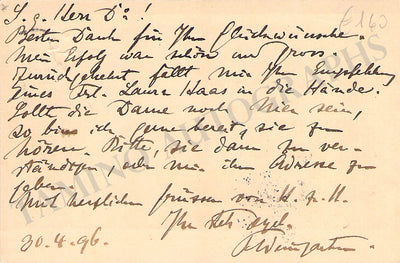 S. g. Herr Dr!
Besten Dank für Ihre Glückwünsche.
Mein Erfolg war schön und gross.
Zurückgekehrt fällt mir Ihre Empfehlung
eines Frl. Laura Haas in die Hände.
Sollte die Dame noch hier sein,
so bin ich gerne bereit, sie zu
hören. Bitte, sie dann zu ver-
ständigen, oder mir ihre Adresse zu
geben.
Mit herzlichen Grüssen von H. z. H.
Ihr stets ergeb.
Weingartner.
30.4.96.
£160
TAMINO AUTOGRAPHS